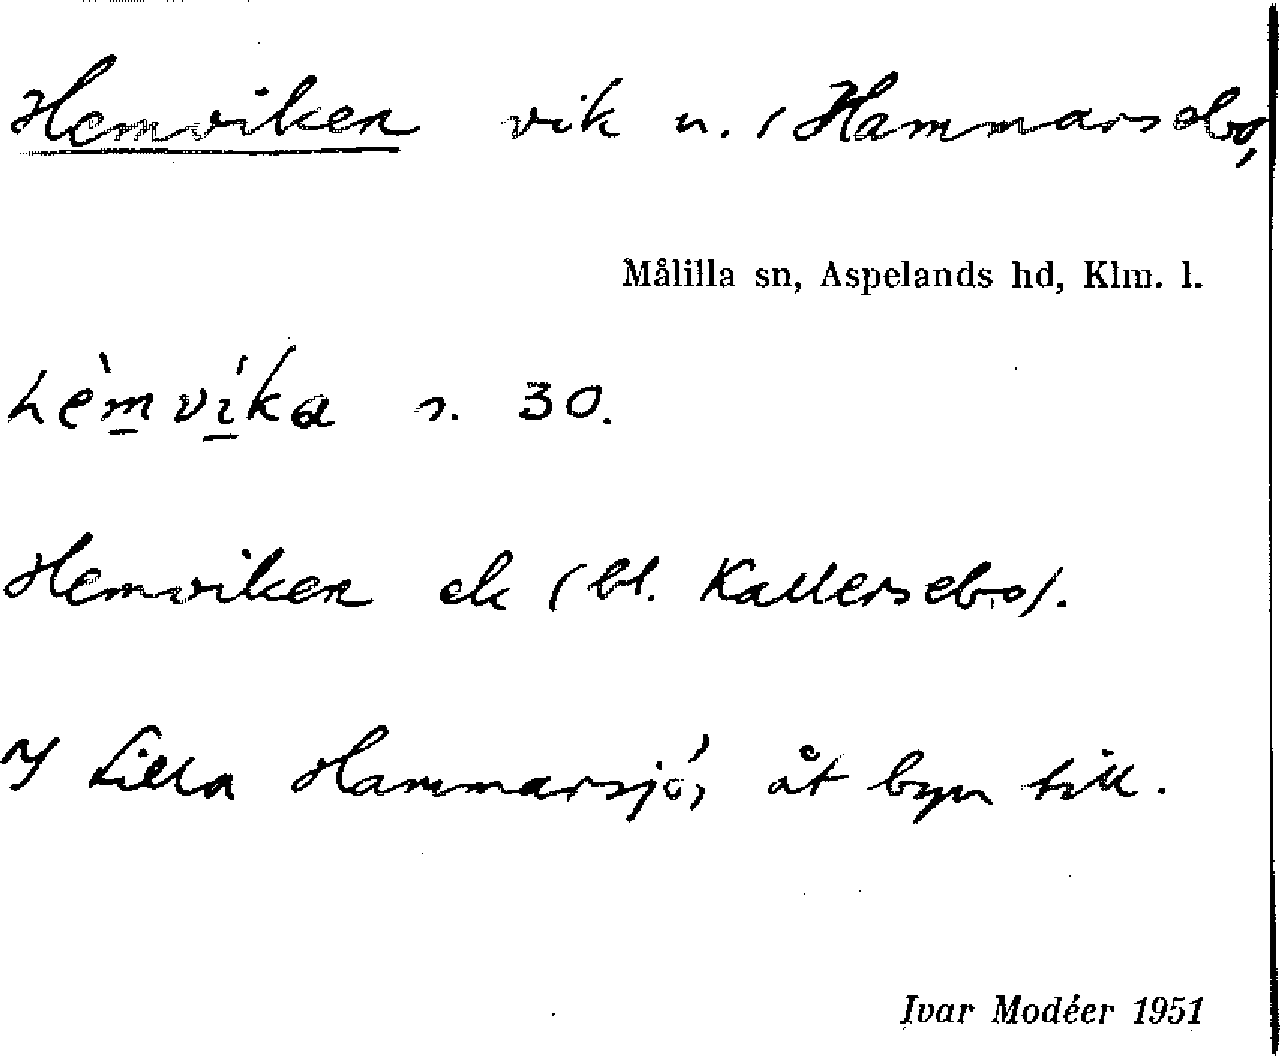 Hemviken vik u. / Hammarsebo,
Målilla sn, Aspelands hd, Klm. l.
hèmvíka s. 30.
Hemviken ek (bl. Kallersebo).
I Lilla Hammarsjö, åt byn till.
Ivar Modéer 1951